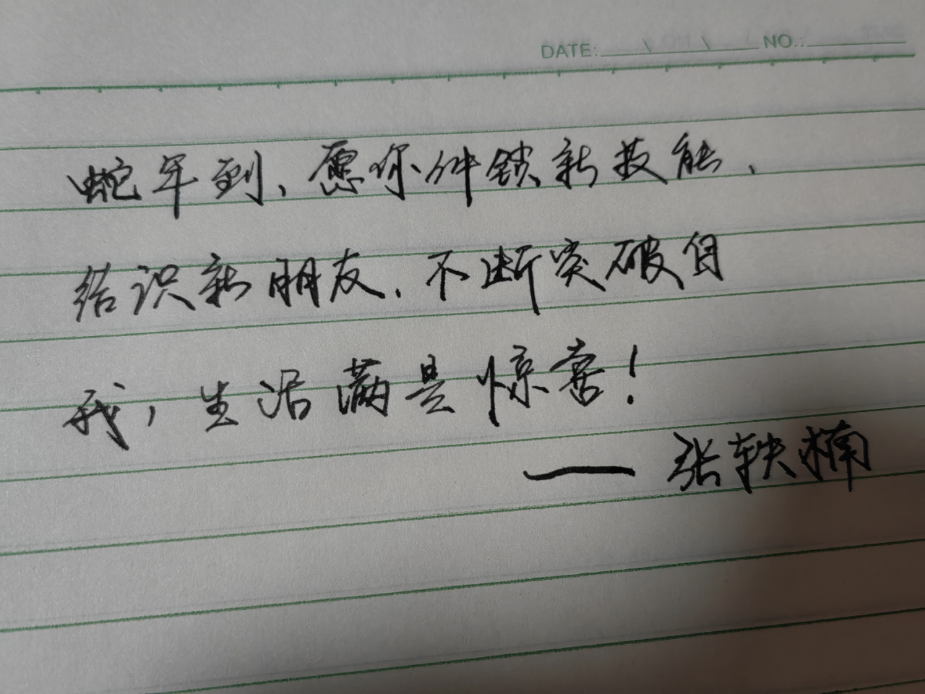 DATE: \ \ NO.:
蛇年到、愿你件锁新技能、
结识新朋友、不断突破自
我，生活满是惊喜！
——张轶楠